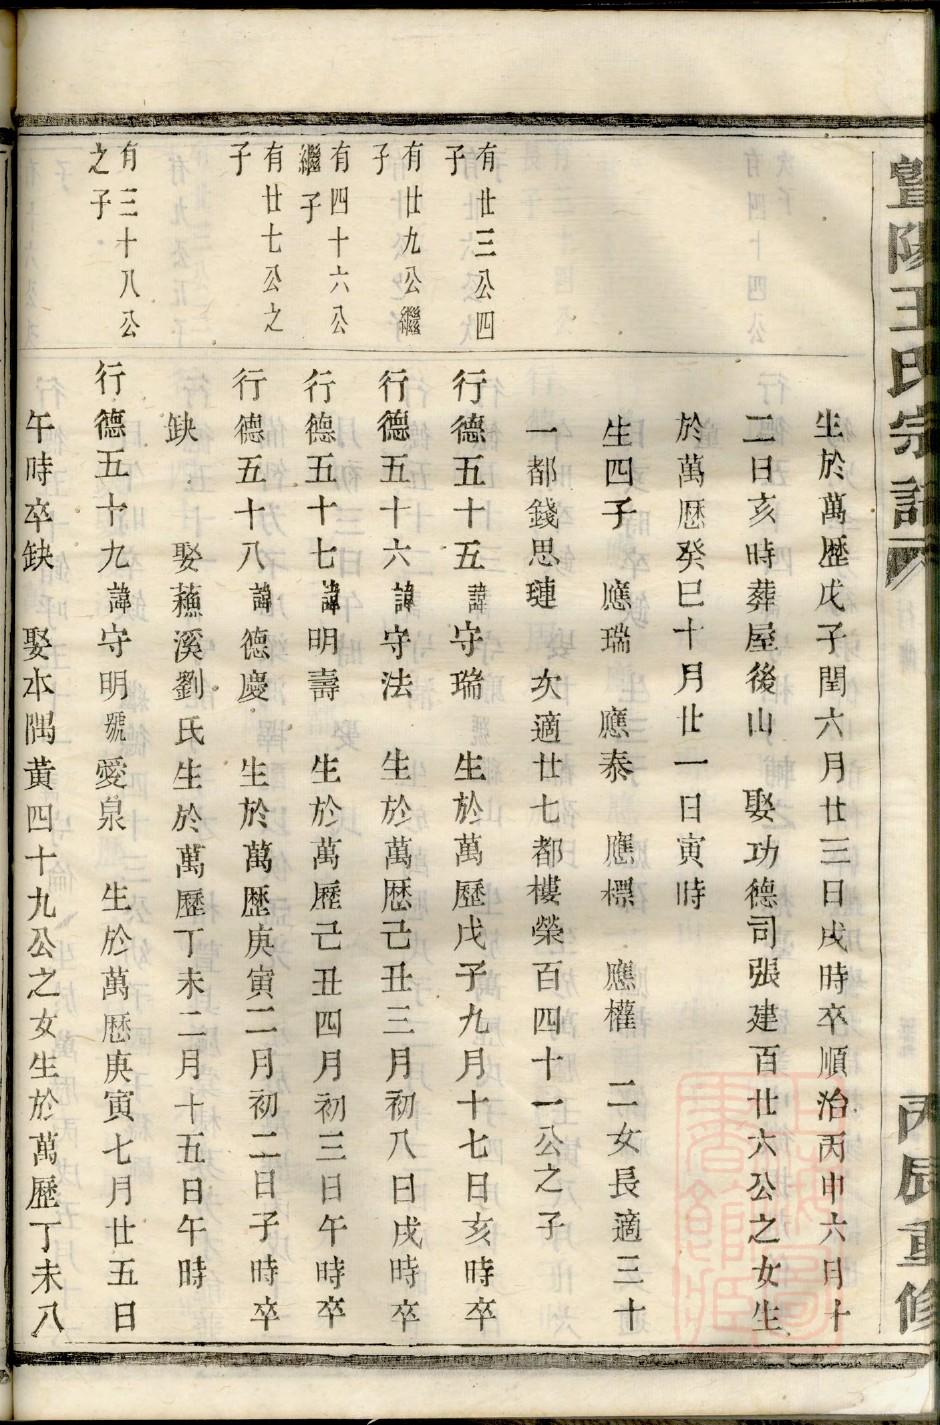 暨陽王氏宗譜
丙辰重修
生於萬歷戊子閏六月廿三日戌時卒順治丙申六月十
二日亥時葬屋後山 娶功德司張建百廿六公之女生
於萬歷癸巳十月廿一日寅時
生四子 應瑞 應泰 應標 應權 二女長適三十
一都錢思璉 次適廿七都樓榮百四十一公之子
有廿三公四
子
行德五十五諱守瑞 生於萬歷戊子九月十七日亥時卒
有廿九公繼
子
行德五十六諱守法 生於萬歷己丑三月初八日戌時卒
有四十六公
繼子
行德五十七諱明壽 生於萬歷己丑四月初三日午時卒
有廿七公之
子
行德五十八諱德慶 生於萬歷庚寅二月初二日子時卒
缺 娶蘓溪劉氏生於萬歷丁未二月十五日午時
有三十八公
之子
行德五十九諱守明號愛泉 生於萬歷庚寅七月廿五日
午時卒缺 娶本隅黃四十九公之女生於萬歷丁未八